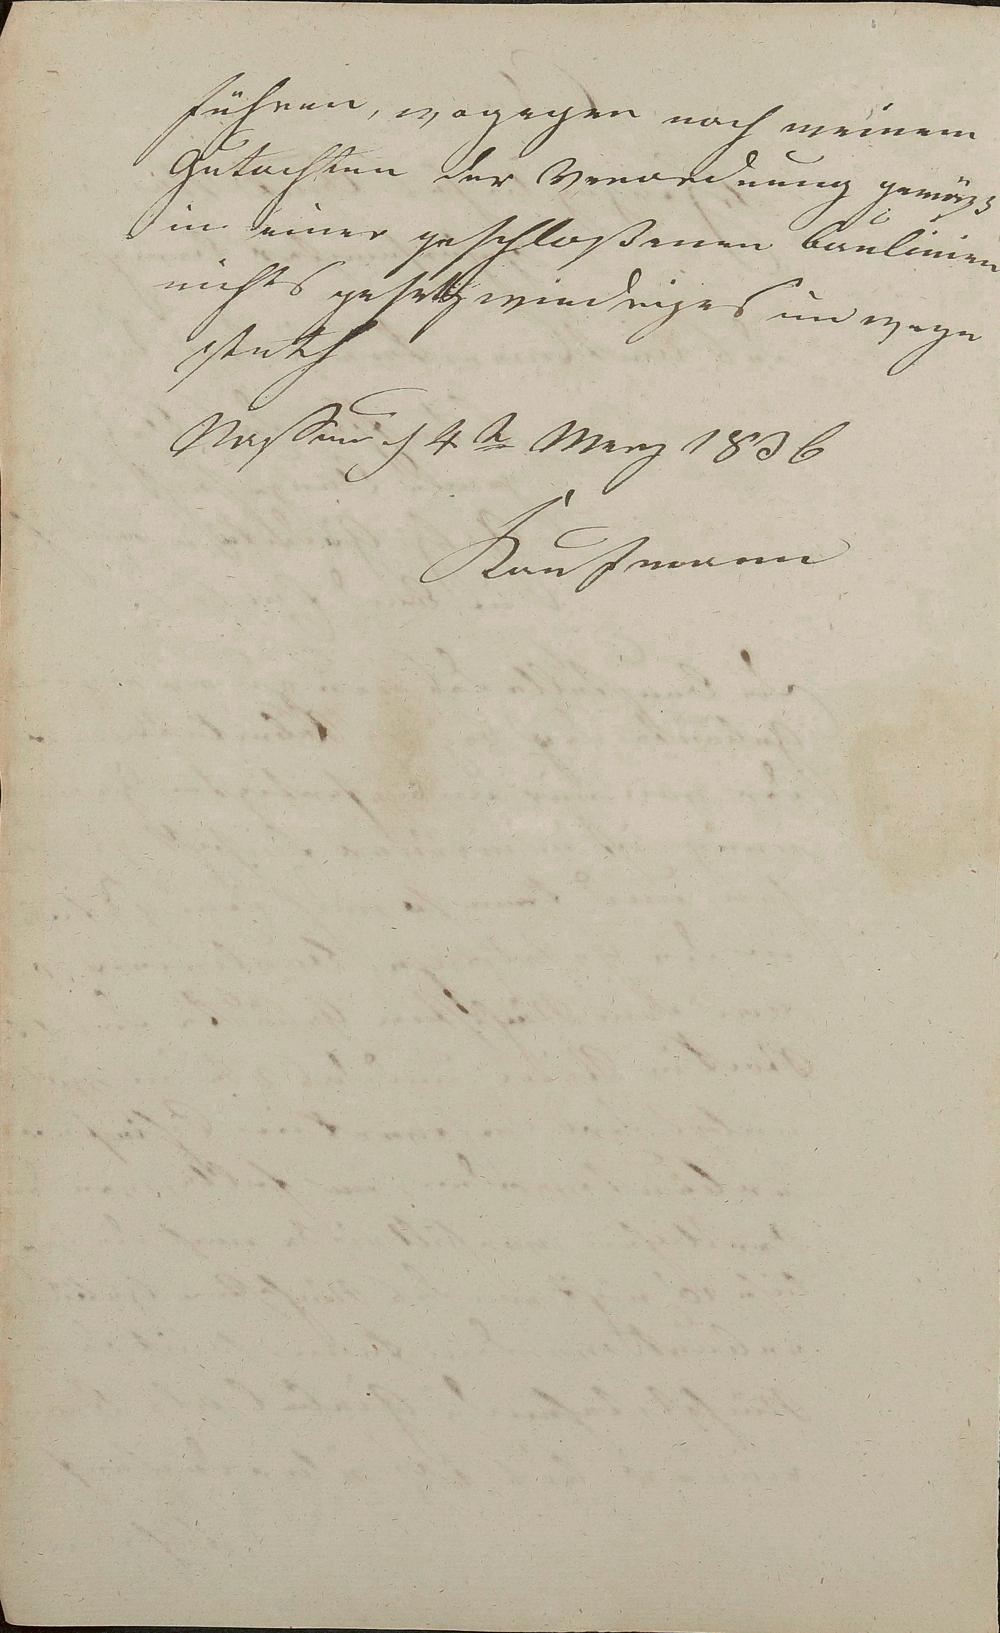 führen, wogegen nach meinem
Gutachten der Verordnung gemäss
in einer geschloßenen Baulinien
nichts gesetzwiedriges im wege
steth
Nassau d 4te Merz 1836
Kaufmann